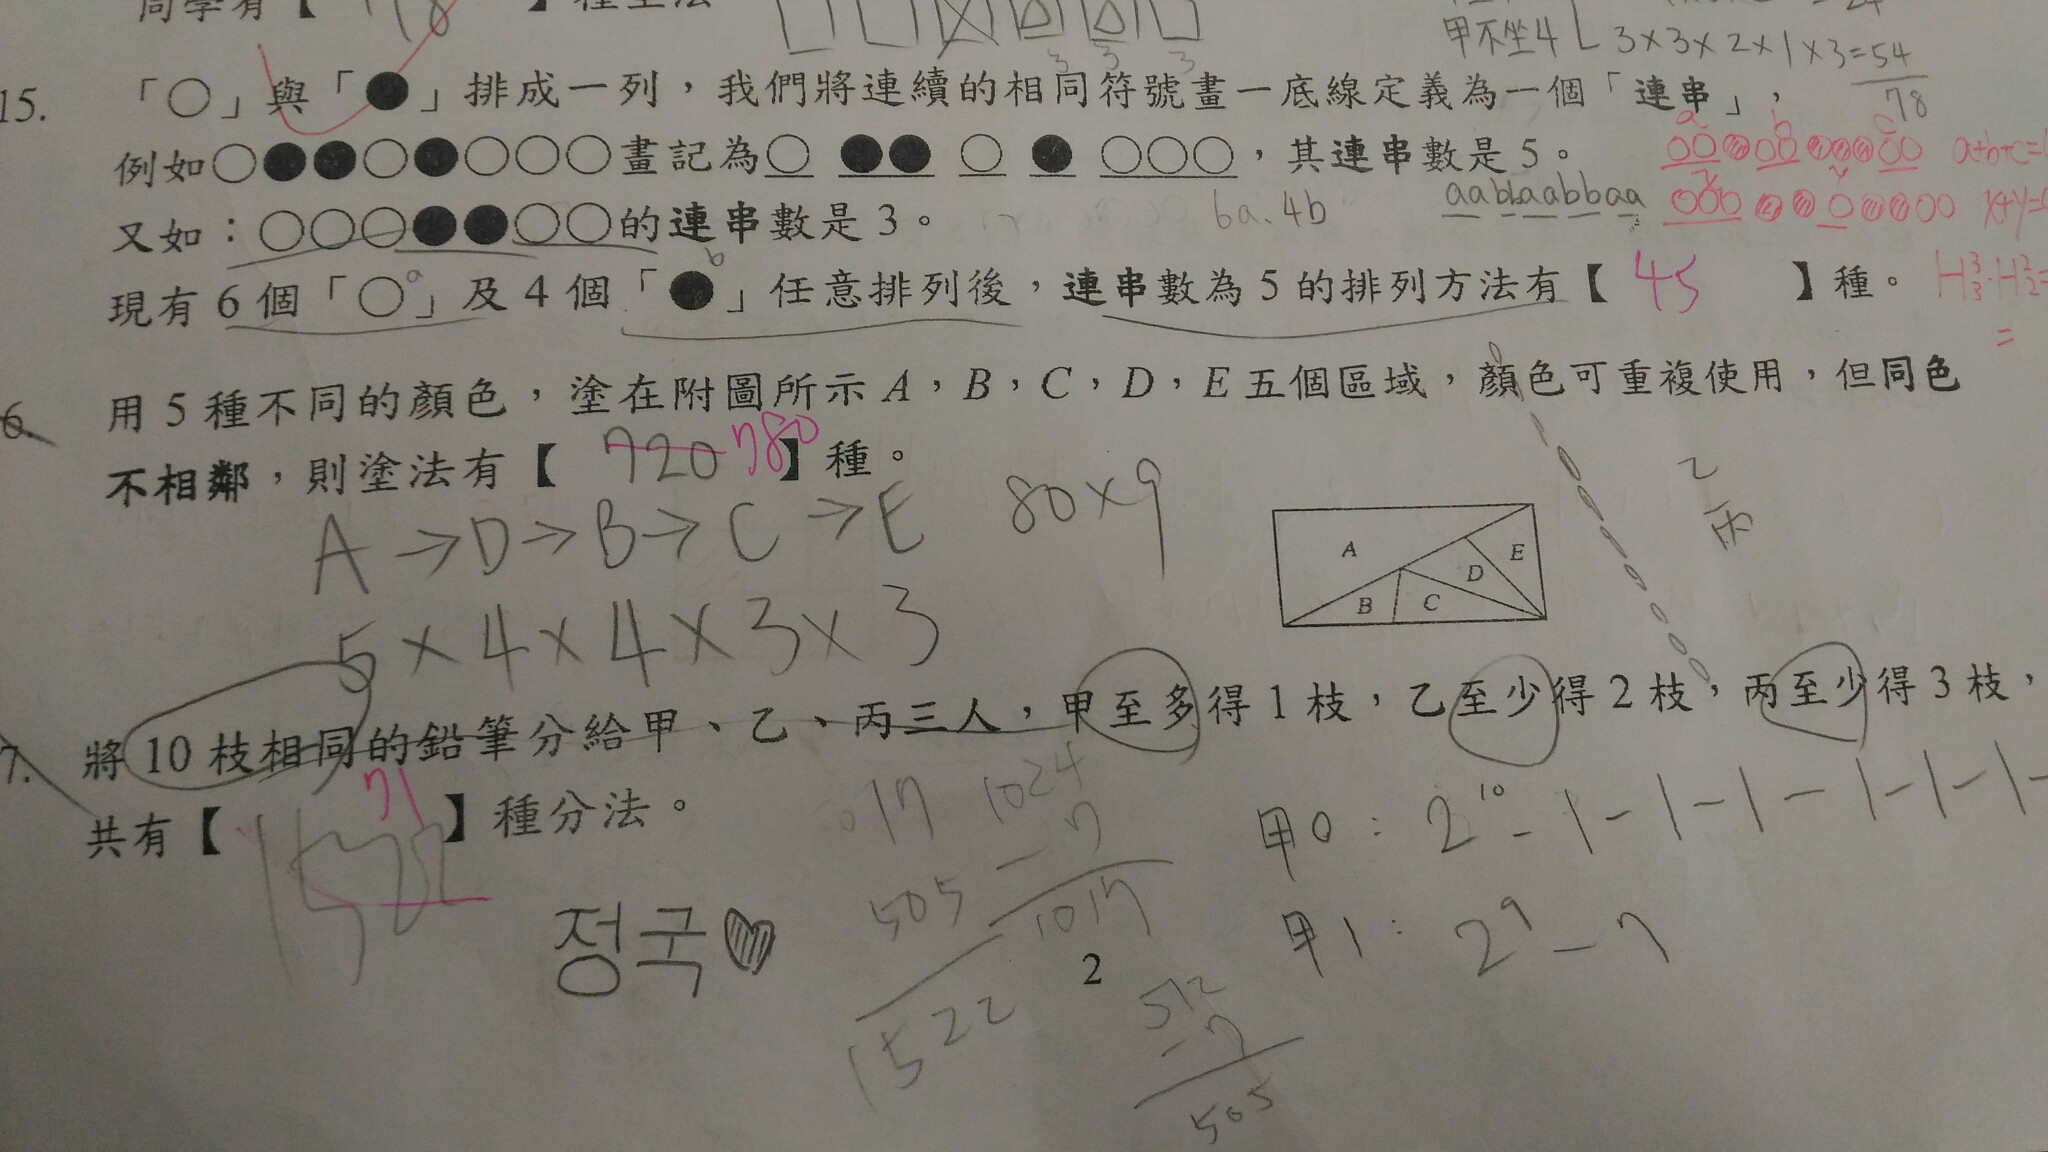 同學有【 78 】種坐法
甲不坐4 3×3×2×1×3=54
78
15. 「○」與「●」排成一列，我們將連續的相同符號畫一底線定義為一個「連串」，
例如○●●○●○○○畫記為○ ●● ○ ● ○○○，其連串數是5。
a b c
a+b+c=
又如：○○○●●○○的連串數是3。
6a.4b
aabbaabbaa
x y
x+y=
a b
現有6個「○」及4個「●」任意排列後，連串數為5的排列方法有【 45 】種。
=
6. 用5種不同的顏色，塗在附圖所示A，B，C，D，E五個區域，顏色可重複使用，但同色
不相鄰，則塗法有【 720 780 】種。
A→D→B→C→E 80×9
5×4×4×3×3
A
B
C
D
E
乙
丙
7. 將10枝相同的鉛筆分給甲、乙、丙三人，甲至多得1枝，乙至少得2枝，丙至少得3枝，
共有【 71 】種分法。
1024
-7
1017
505
1522
甲0：2^10-1-1-1-1-1-1-
甲1：2^9-7
정국♥
2
512
-7
505